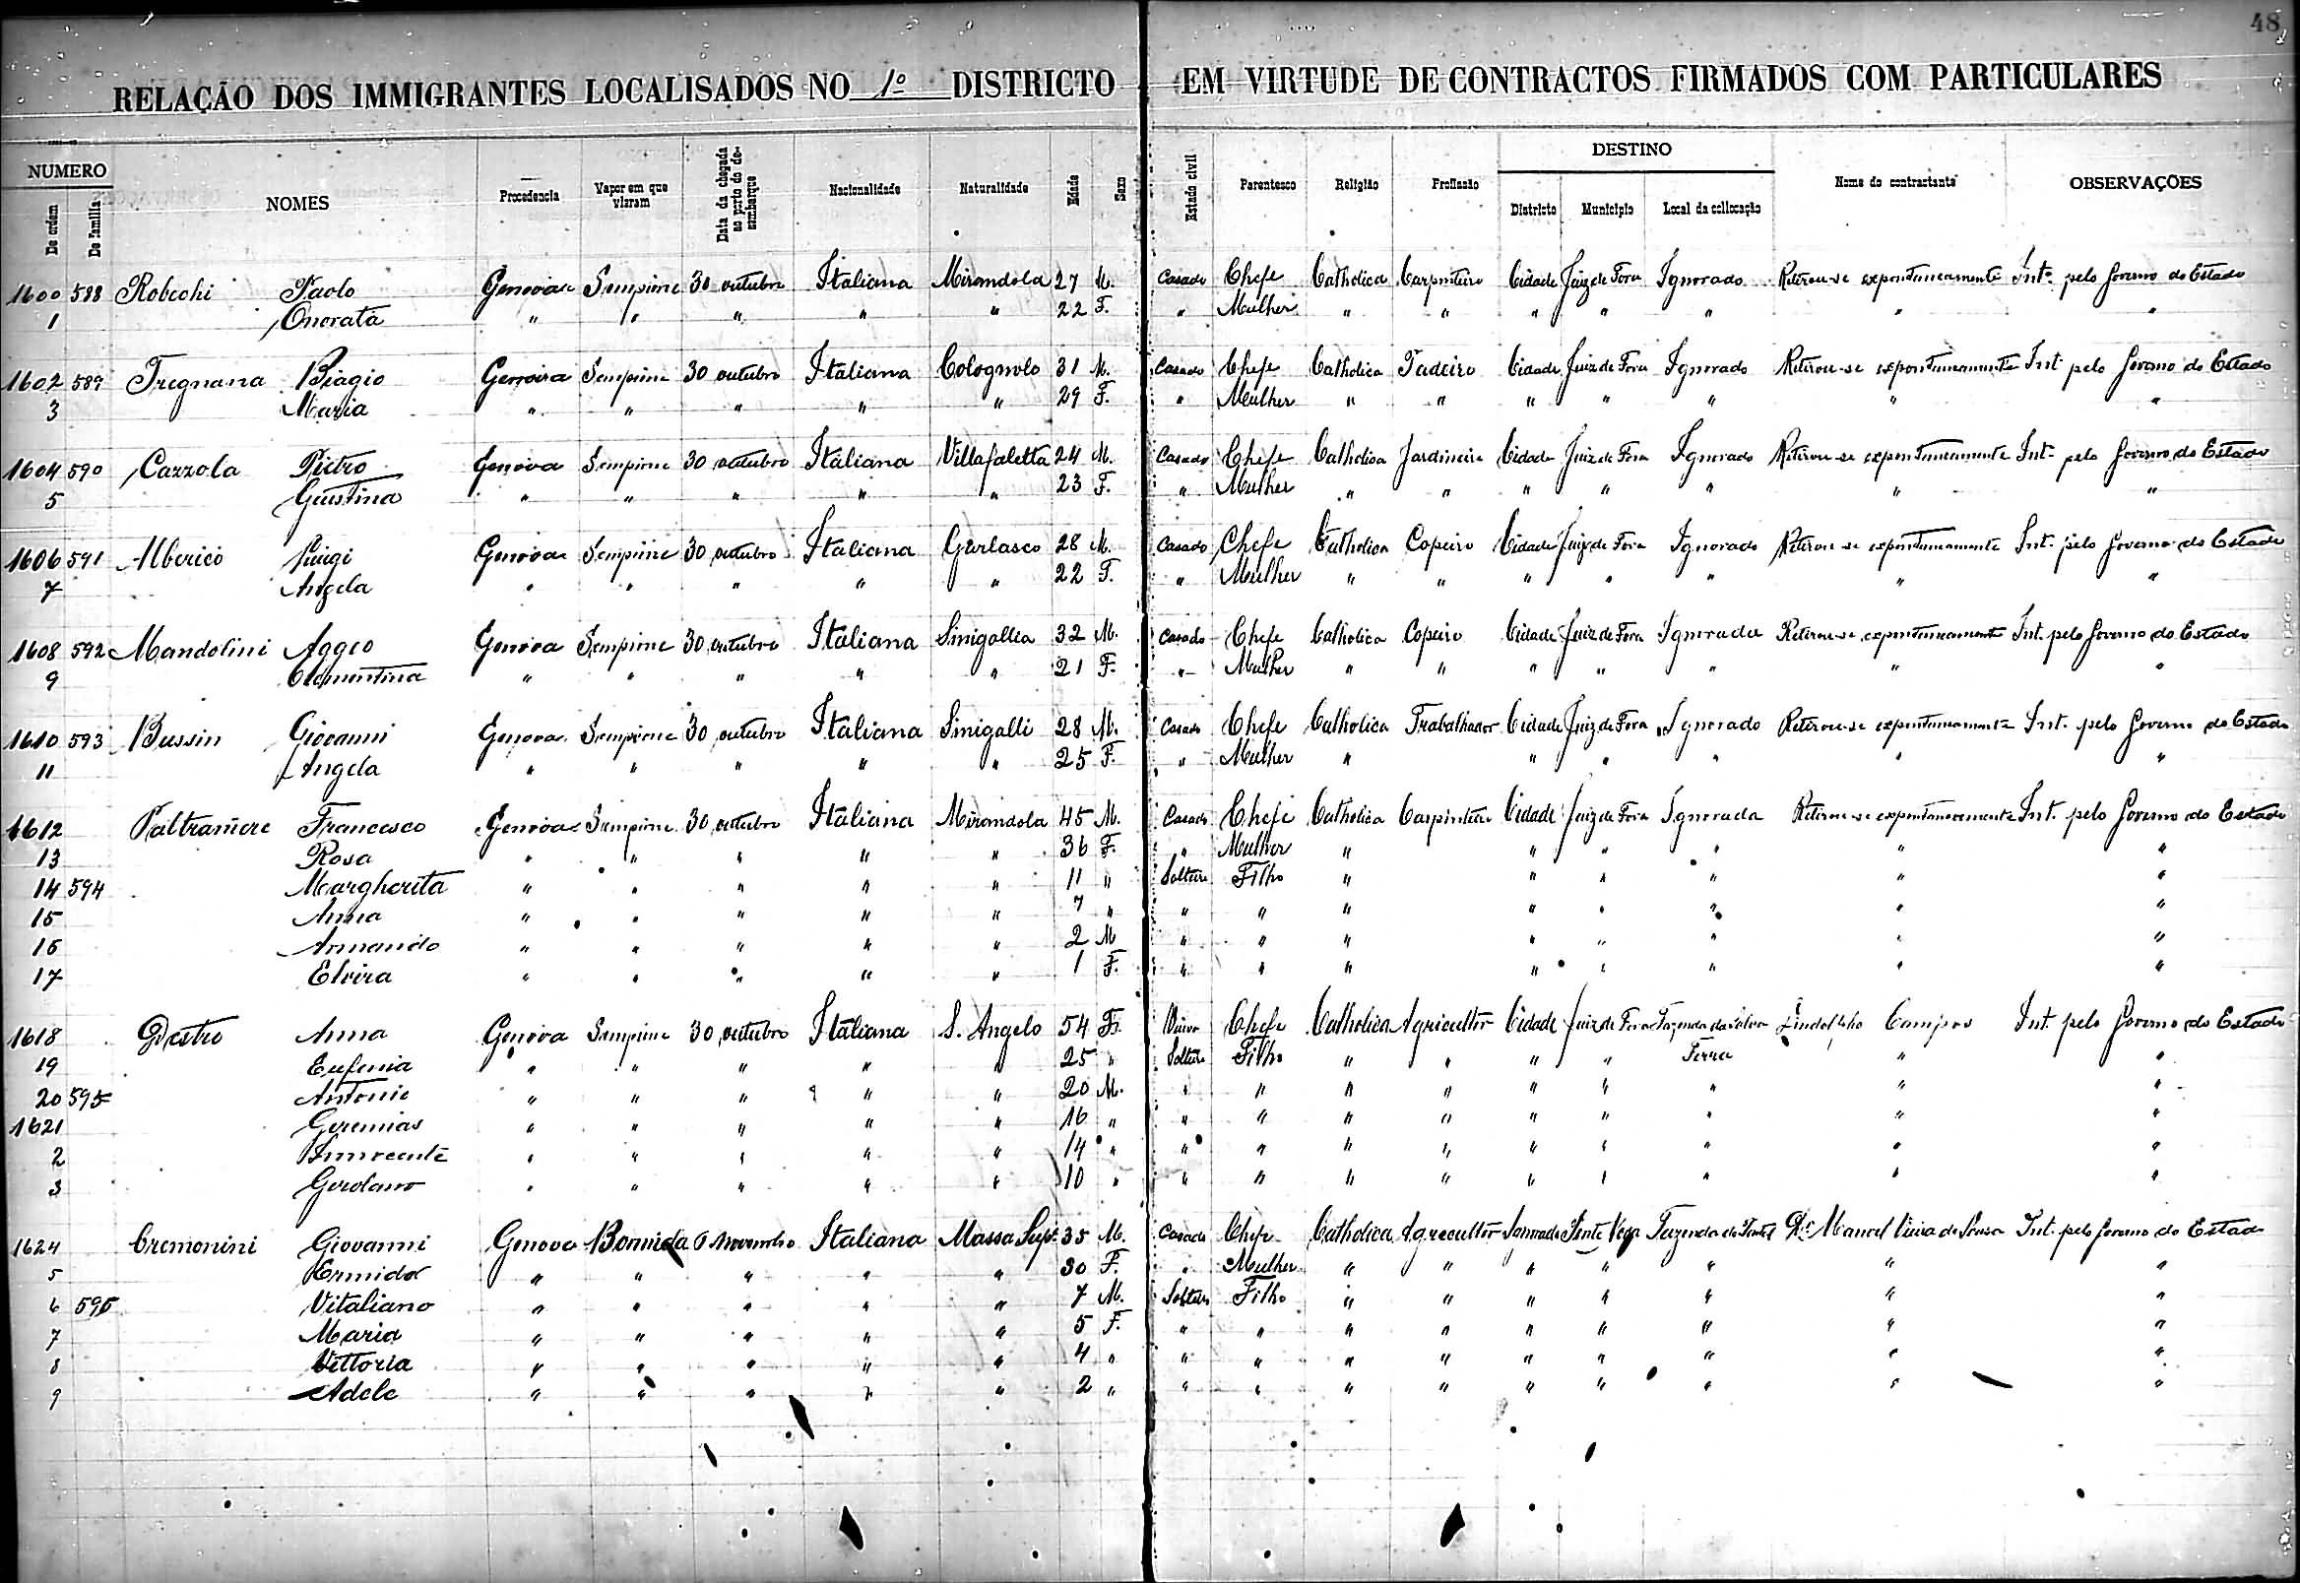 48
RELAÇÃO DOS IMMIGRANTES LOCALISADOS NO 1º DISTRICTO EM VIRTUDE DE CONTRACTOS FIRMADOS COM PARTICULARES
NUMERO De ordem De familia NOMES Procedencia Vapor em que vieram Data da chegada ao porto do desembarque Nacionalidade Naturalidade Edade Sexo Estado civil Parentesco Religião Profissão DESTINO Districto Municipio Local da collocação Nome do contractante OBSERVAÇÕES
1600 588 Robechi Paolo Genova Sempione 30 outubro Italiana Mirandola 27 M. Casado Chefe Catholica Carpinteiro Cidade Juiz de Fora Ignorado Retirou-se expontaneamente Int. pelo Governo do Estado
1 Onorata " " " " " 22 F. " Mulher " " " " " " "
1602 589 Tregnana Biagio Genova Sempione 30 outubro Italiana Colognolo 31 M. Casado Chefe Catholica Padeiro Cidade Juiz de Fora Ignorado Retirou-se expontaneamente Int. pelo Governo do Estado
3 Maria " " " " " 29 F. " Mulher " " " " " " "
1604 590 Cazzola Pietro Genova Sempione 30 outubro Italiana Villafaletta 24 M. Casado Chefe Catholica Jardineiro Cidade Juiz de Fora Ignorado Retirou-se expontaneamente Int. pelo Governo do Estado
5 Giustina " " " " " 23 F. " Mulher " " " " " " "
1606 591 Alberico Luigi Genova Sempione 30 outubro Italiana Garlasco 28 M. Casado Chefe Catholica Copeiro Cidade Juiz de Fora Ignorado Retirou-se expontaneamente Int. pelo Governo do Estado
7 Angela " " " " " 22 F. " Mulher " " " " " " "
1608 592 Mandolini Aggeo Genova Sempione 30 outubro Italiana Sinigallia 32 M. Casado Chefe Catholica Copeiro Cidade Juiz de Fora Ignorado Retirou-se expontaneamente Int. pelo Governo do Estado
9 Clementina " " " " " 21 F. " Mulher " " " " " " "
1610 593 Bussin Giovanni Genova Sempione 30 outubro Italiana Sinigalli 28 M. Casado Chefe Catholica Trabalhador Cidade Juiz de Fora Ignorado Retirou-se expontaneamente Int. pelo Governo do Estado
11 Angela " " " " " 25 F. " Mulher " " " " " "
1612 Paltramere Francesco Genova Sempione 30 outubro Italiana Mirandola 45 M. Casado Chefe Catholica Carpinteiro Cidade Juiz de Fora Ignorado Retirou-se expontaneamente Int. pelo Governo do Estado
13 Rosa " " " " " 36 F. " Mulher " " " " " "
14 594 Margherita " " " " " 11 " Solteiro Filho " " " " " "
15 Anna " " " " " 7 " " " " " " " " "
16 Armando " " " " " 2 M " " " " " " " "
17 Elvira " " " " " 1 F. " " " " " " " "
1618 Destro Anna Genova Sempione 30 outubro Italiana S. Angelo 54 F. Viuva Chefe Catholica Agricultor Cidade Juiz de Fora Fazenda da Campos Int. pelo Governo do Estado
19 Eufemia " " " " " 25 " Solteiro Filho " " " " Terra " "
20 595 Antonio " " " " " 20 M. " " " " " " " " "
1621 Geremias " " " " " 16 " " " " " " " " " "
2 Innocente " " " " " 14 " " " " " " " " " "
3 Gerolamo " " " " " 10 " " " " " " " " " "
1624 Cremonini Giovanni Genova Bormida 6 Novembro Italiana Massa Sup. 35 M. Casado Chefe Catholica Agricultor Ponte Nova Fazenda do Dr. Manoel Vieira de Sousa Int. pelo Governo do Estado
5 Ermida " " " " " 30 F. " Mulher " " " " " " "
6 596 Vitaliano " " " " " 7 M. Solteiro Filho " " " " " " "
7 Maria " " " " " 5 F. " " " " " " " " "
8 Vittoria " " " " " 4 " " " " " " " " " "
9 Adele " " " " " 2 " " " " " " " " " "